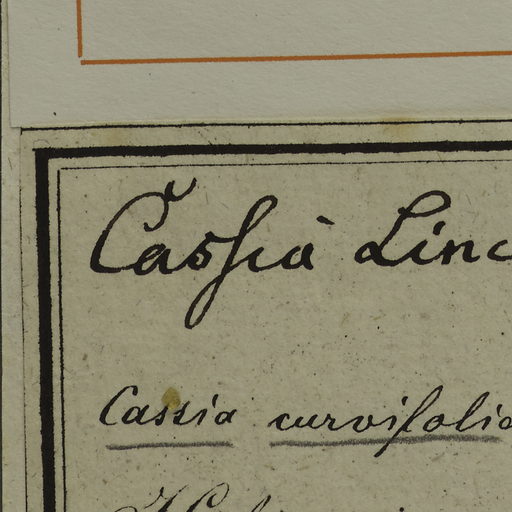 Cassia Linc
Cassia curvifolia